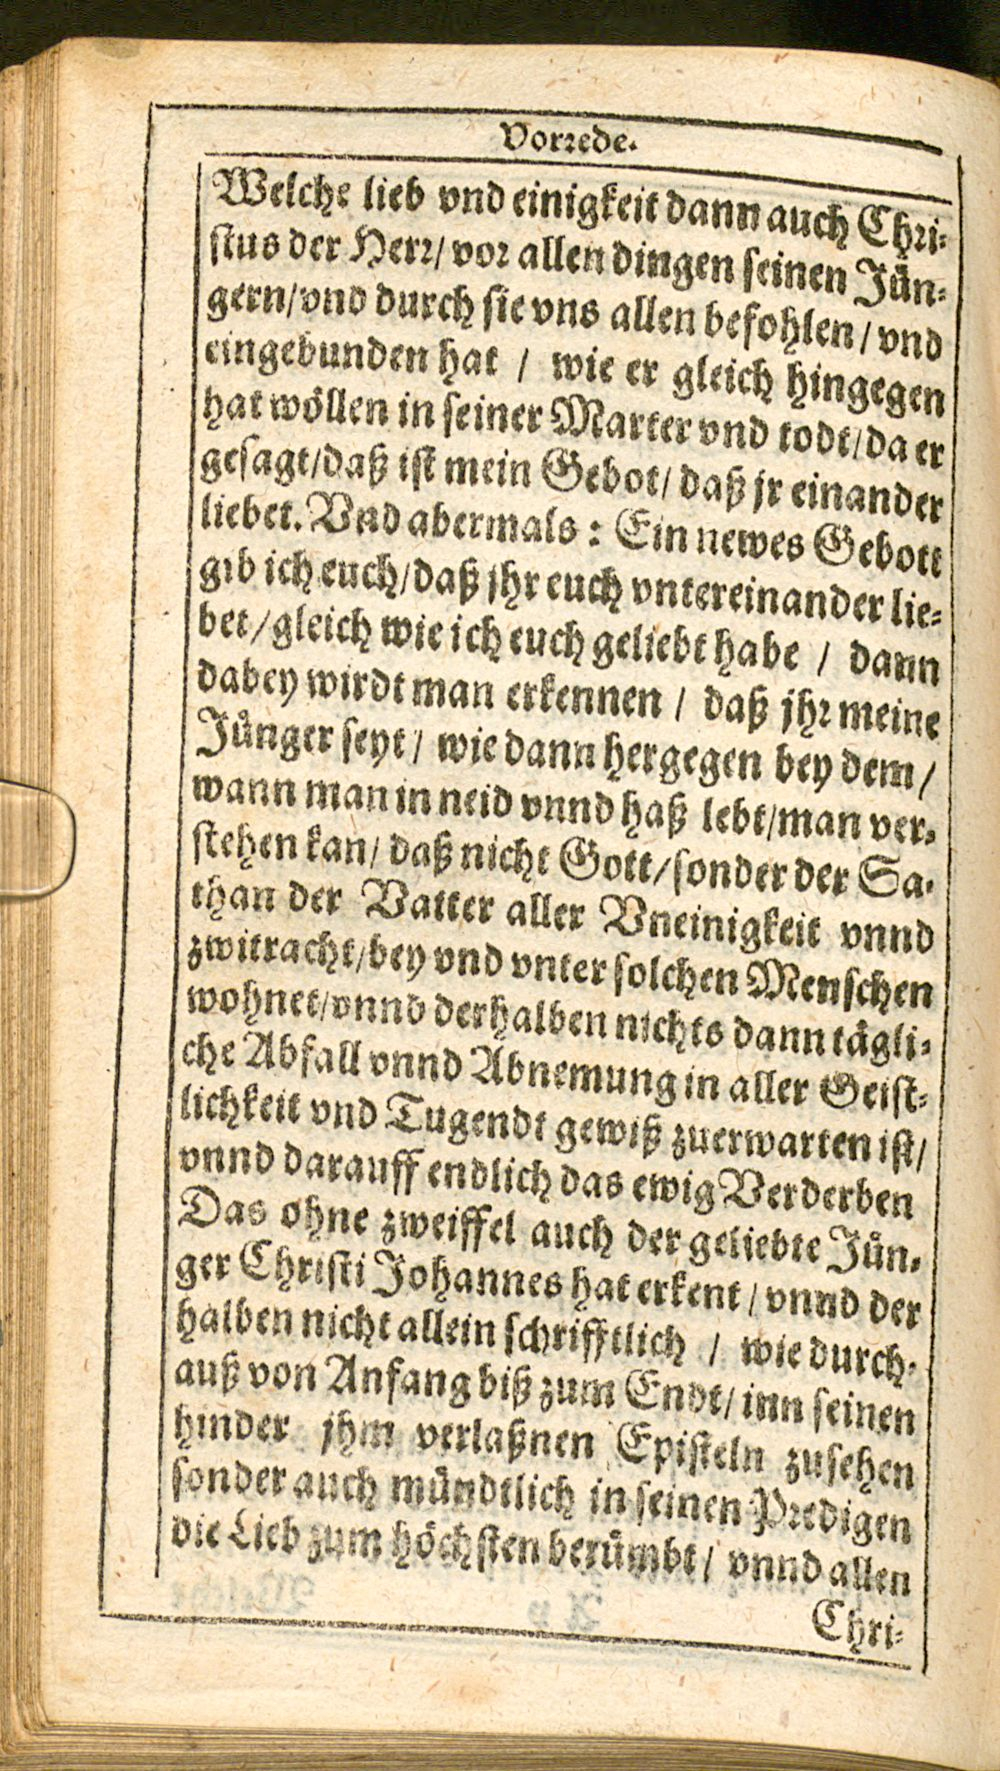 Vorrede.
Welche lieb vnd einigkeit dann auch Chri-
stus der Herr/ vor allen dingen seinen Jün-
gern/ vnd durch sie vns allen befohlen / vnd
eingebunden hat / wie er gleich hingegen
hat wöllen in seiner Marter vnd todt/ da er
gesagt/ daß ist mein Gebot/ daß jr einander
liebet. Vnd abermals : Ein newes Gebott
gib ich euch/ daß jhr euch vntereinander lie-
bet / gleich wie ich euch geliebt habe / dann
dabey wirdt man erkennen / daß jhr meine
Jünger seyt / wie dann hergegen bey dem /
wann man in neid vnnd haß lebt/ man ver-
stehen kan/ daß nicht Gott/ sonder der Sa-
than der Vatter aller Vneinigkeit vnnd
zwitracht/ bey vnd vnter solchen Menschen
wohnet/ vnnd derhalben nichts dann tägli-
che Abfall vnnd Abnemung in aller Geist-
lichkeit vnd Tugendt gewiß zuerwarten ist/
vnnd darauff endlich das ewig Verderben
Das ohne zweiffel auch der geliebte Jün-
ger Christi Johannes hat erkent / vnnd der
halben nicht allein schrifftlich / wie durch-
auß von Anfang biß zum Endt/ inn seinen
hinder jhm verlaßnen Episteln zusehen
sonder auch mündtlich in seinen Predigen
die Lieb zum höchsten berümbt / vnnd allen
Chri-